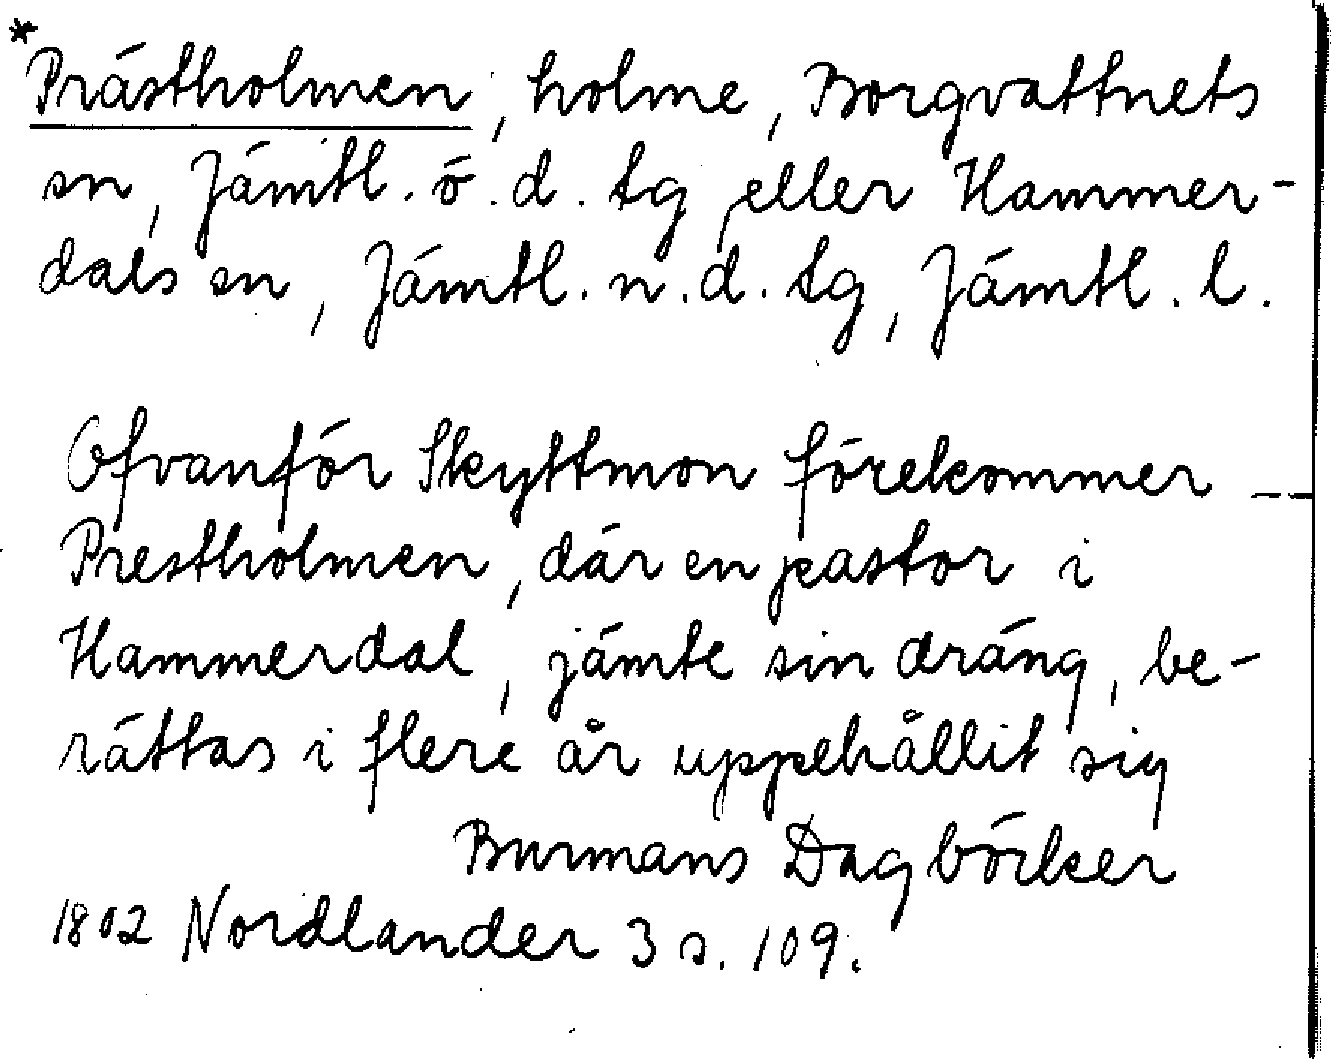 *
Prästholmen, holme, Borgvattnets
sn, Jämtl. ö. d. tg, eller Hammer-
dals sn, Jämtl. n. d. tg, Jämtl. l.
Ofvanför Skyttmon förekommer --
Prestholmen, där en pastor i
Hammerdal, jämte sin dräng, be-
rättas i flere år uppehållit sig
Burmans Dagböcker
1802 Nordlander 3 s. 109.